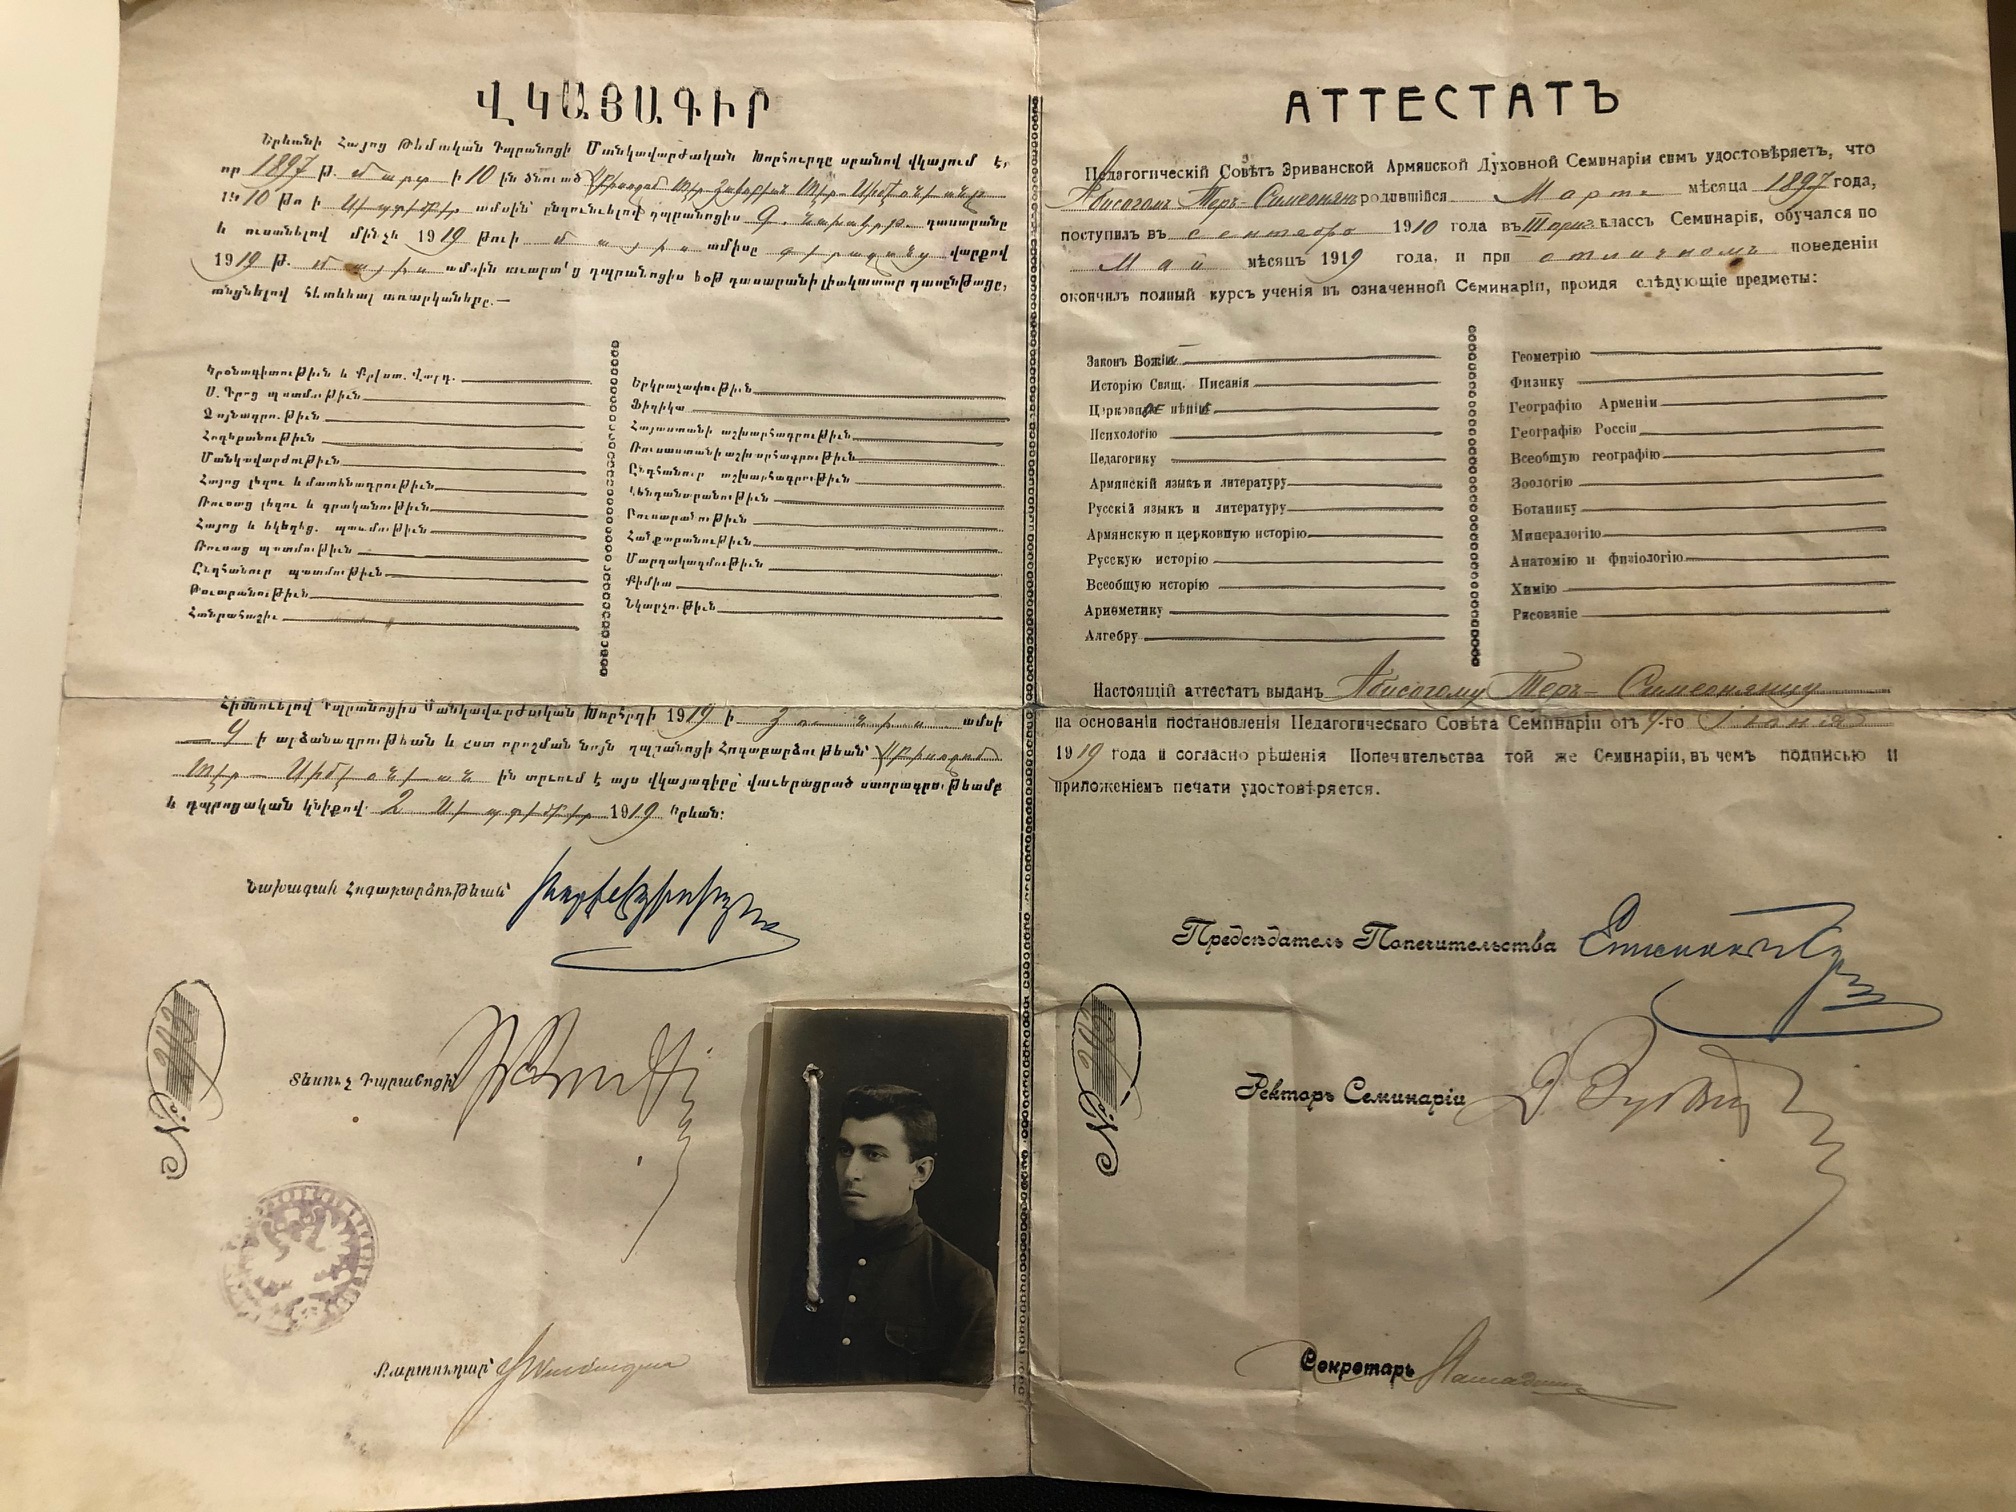 ՎԿԱՅԱԳԻՐ
Երևանի Հայոց Թեմական Դպրանոցի Մանկավարժական Խորհուրդը սրանով վկայում է,
որ 1897 թ. մարտ ի 10 ին ծնուած
1910 թ ի Սեպտեմբեր ամսին ընդունւելով դպրանոցիս դասարանը
և ուսանելով մինչև 1919 թուի մայիս ամիսը գերազանց վարքով
1919 թ. մայիս ամսին աւարտեց դպրանոցիս եօթ դասարանի լիակատար դասընթացը,
անցնելով հետևեալ առարկաները.—
Կրօնագիտութիւն և Քրիստ. վարդ.
Ս. Գրոց պատմութիւն
Ձայնագրութիւն
Հոգեբանութիւն
Մանկավարժութիւն
Հայոց լեզու և մատենագրութիւն
Ռուսաց լեզու և գրականութիւն
Հայոց և եկեղեց. պատմութիւն
Ռուսաց պատմութիւն
Ընդհանուր պատմութիւն
Թուաբանութիւն
Հանրահաշիւ
Երկրաչափութիւն
Ֆիզիկա
Հայաստանի աշխարհագրութիւն
Ռուսաստանի աշխարհագրութիւն
Ընդհանուր աշխարհագրութիւն
Կենդանաբանութիւն
Բուսաբանութիւն
Հանքաբանութիւն
Մարդակազմութիւն
Քիմիա
Նկարչութիւն
Հիմնուելով Դպրանոցիս Մանկավարժական Խորհրդի 1919 ի Յունիս ամսի
4 ի արձանագրութեան և ըստ որոշման նոյն դպրանոցի Հոգաբարձութեան՝ Աբիսողոմ
Տէր-Սիմէոնեան ին տրւում է այս վկայագիրը՝ վաւերացրած ստորագրութեամբ
և դպրոցական կնիքով. 2 Սեպտեմբեր 1919 Երևան:
Նախագահ Հոգաբարձութեան՝
Տեսուչ Դպրանոցի՝
Քարտուղար՝
№
АТТЕСТАТЪ
Педагогическій Совѣтъ Эриванской Армянской Духовной Семинаріи симъ удостовѣряетъ, что
Абисогомъ Теръ-Симеонянъ родившійся Марта мѣсяца 1897 года,
поступилъ въ сентябрѣ 1910 года въ III классъ Семинаріи, обучался по
Май мѣсяцъ 1919 года, и при отличномъ поведеніи
окончилъ полный курсъ ученія въ означенной Семинаріи, пройдя слѣдующіе предметы:
Законъ Божій
Исторію Свящ. Писанія
Церковное пѣніе
Психологію
Педагогику
Армянскій языкъ и литературу
Русскій языкъ и литературу
Армянскую и церковную исторію
Русскую исторію
Всеобщую исторію
Ариѳметику
Алгебру
Геометрію
Физику
Географію Арменіи
Географію Россіи
Всеобщую географію
Зоологію
Ботанику
Минералогію
Анатомію и физіологію
Химію
Рисованіе
Настоящій аттестатъ выданъ Абисогому Теръ-Симеонянцу
на основаніи постановленія Педагогическаго Совѣта Семинаріи отъ 4-го Іюня
1919 года и согласно рѣшенія Попечительства той же Семинаріи, въ чемъ подписью и
приложеніемъ печати удостовѣряется.
Предсѣдатель Попечительства
Ректоръ Семинаріи
Секретарь
№